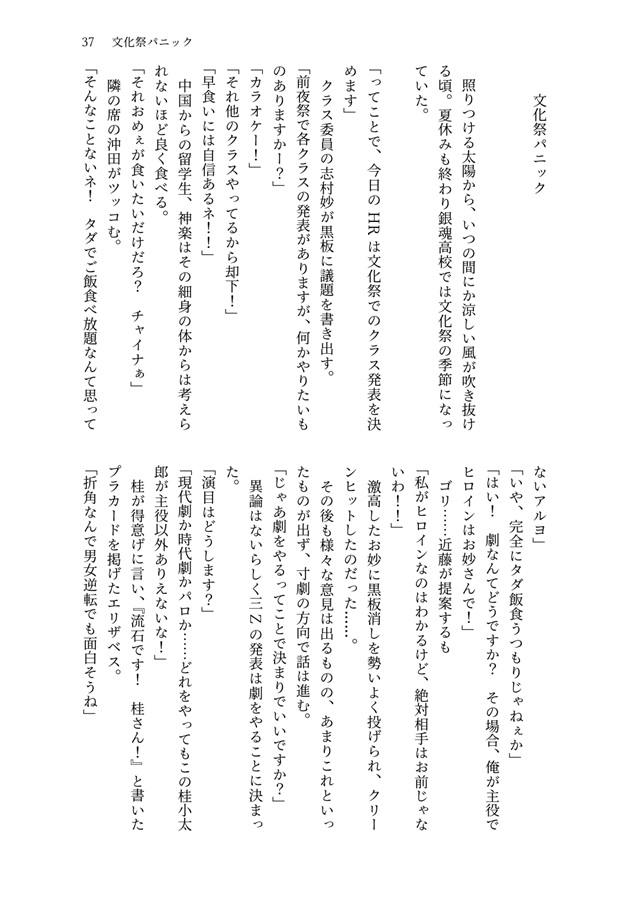 37　文化祭パニック
文化祭パニック
照りつける太陽から、いつの間にか涼しい風が吹き抜け
る頃。夏休みも終わり銀魂高校では文化祭の季節になっ
ていた。
「ってことで、今日の HR は文化祭でのクラス発表を決
めます」
クラス委員の志村妙が黒板に議題を書き出す。
「前夜祭で各クラスの発表がありますが、何かやりたいも
のありますかー？」
「カラオケー！」
「それ他のクラスやってるから却下！」
「早食いには自信あるネ！！」
中国からの留学生、神楽はその細身の体からは考えら
れないほど良く食べる。
「それおめぇが食いたいだけだろ？　チャイナぁ」
隣の席の沖田がツッコむ。
「そんなことないネ！　タダでご飯食べ放題なんて思って
ないアルヨ」
「いや、完全にタダ飯食うつもりじゃねぇか」
「はい！　劇なんてどうですか？　その場合、俺が主役で
ヒロインはお妙さんで！」
ゴリ……近藤が提案するも
「私がヒロインなのはわかるけど、絶対相手はお前じゃな
いわ！！」
激高したお妙に黒板消しを勢いよく投げられ、クリー
ンヒットしたのだった……。
その後も様々な意見は出るものの、あまりこれといっ
たものが出ず、寸劇の方向で話は進む。
「じゃあ劇をやるってことで決まりでいいですか？」
異論はないらしく三 Z の発表は劇をやることに決まっ
た。
「演目はどうします？」
「現代劇か時代劇かパロか……どれをやってもこの桂小太
郎が主役以外ありえないな！」
桂が得意げに言い、『流石です！　桂さん！』と書いた
プラカードを掲げたエリザベス。
「折角なんで男女逆転でも面白そうね」